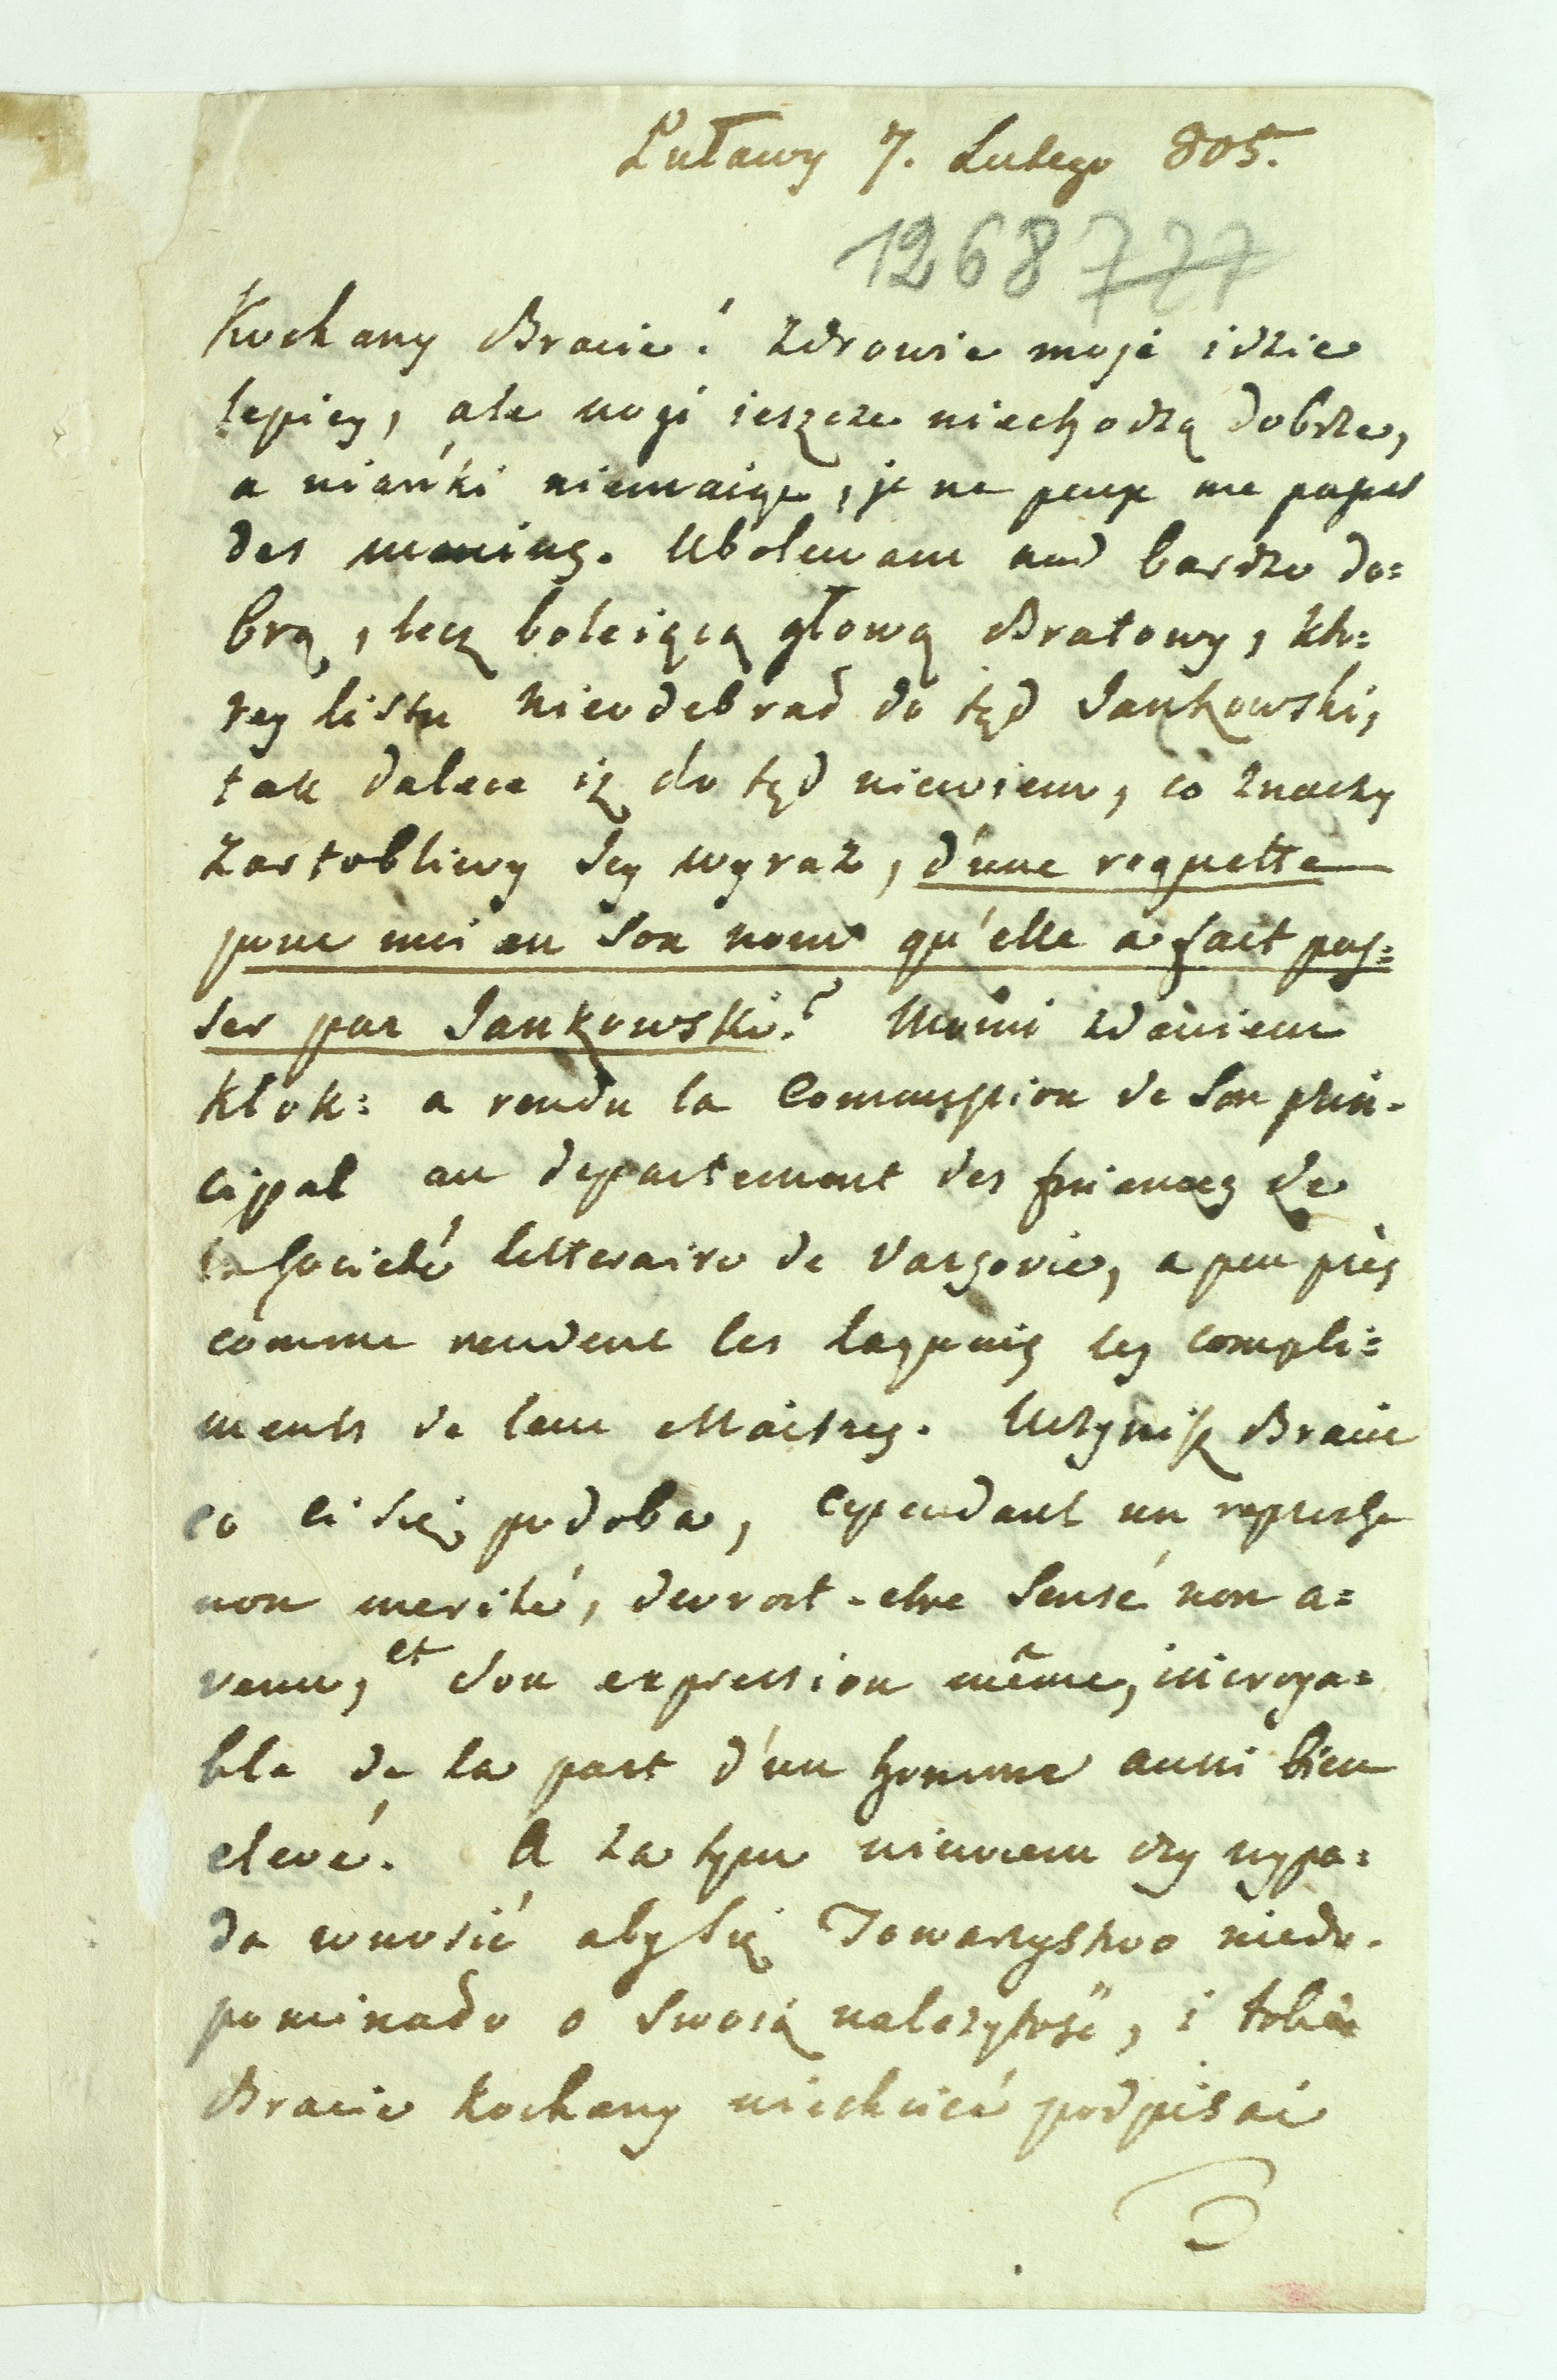 Puławy 7. Lutego 805.
1268 777
Kochany Bracie! Zdrowie moje idzie
lepiey, ale nogi ieszcze niechodzą dobrze,
a niańki niemaiąc, je ne peux me passer
des mening. Ubolewam nad bardzo do=
brą, lecz boleiącą głową Bratowy, któ=
rey listu nieodebrał do tąd Jankowski,
tak dalece iż do tąd niewiem, co znaczy
żartobliwy Jey wyraz, d'une requette
pour moi en son nom qu'elle a fait pas=
ser par Jankowski? Moim zdaniem
Kłok: a rendu la Commission de Son prin-
cipal au departement des sciences de
la Société letteraire de Varsovie, a peu près
comme rendent les laquais les compli=
ments de leur Maitres. Uczynisz Bracie
co ci się podoba, cependant un reproche
non merité, devroit-etre Sensé non a=
venu, et Son expression même, incroya=
ble de la part d'un homme aussi bien
elevé. A za tym niewiem czy wypa=
da wnosić aby się Towarzystwo niedo-
pominało o Swoią należytość, i tobie
Bracie Kochany niechcieć podpisać